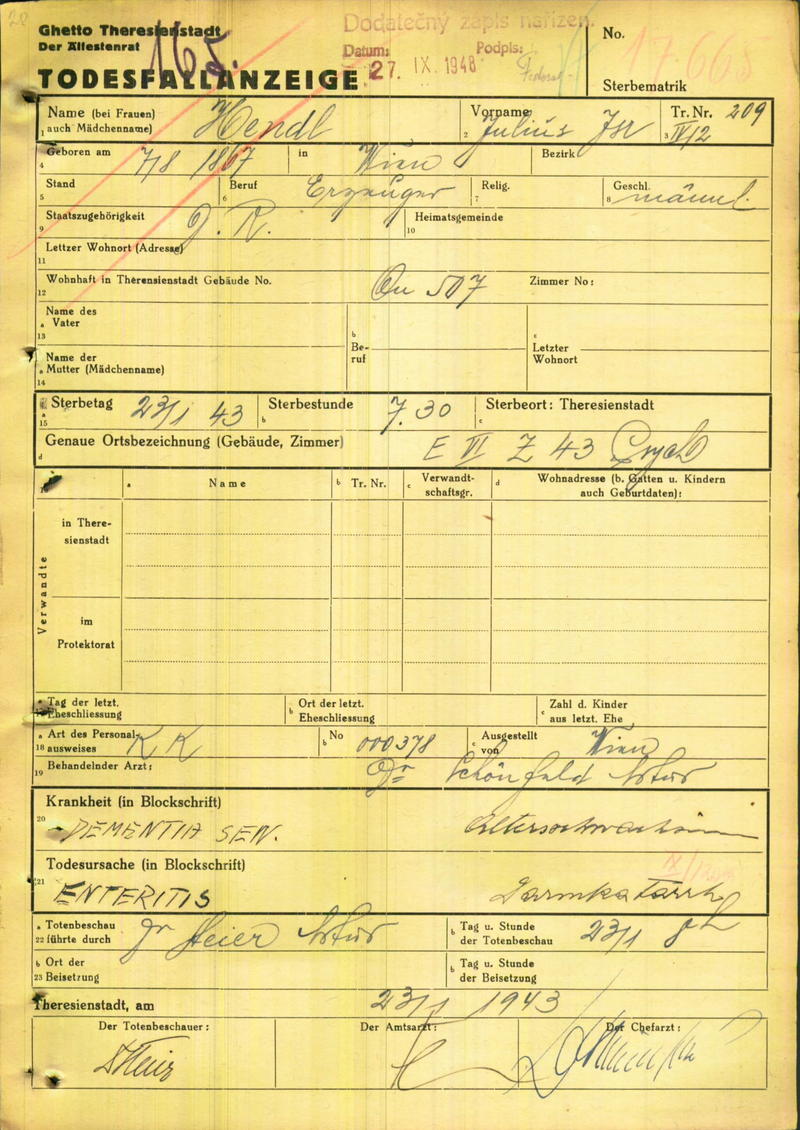 Ghetto Theresienstadt
Der Ältestenrat
165.
TODESFALLANZEIGE
Dodatečný zápis nařízen.
Datum: 27. IX. 1948 Podpis:
No. 17.665
Sterbematrik
Name (bei Frauen) Hendl Vorname Julius Isr Tr. Nr. 209
1 auch Mädchenname) 2 3 IV/2
Geboren am 7/8 1867 in Wien Bezirk
4
Stand Beruf Erzeuger Relig. Geschl. männl.
5 6 7 8
Staatszugehörigkeit D. R. Heimatsgemeinde
9 10
Letzter Wohnort (Adresse)
11
Wohnhaft in Theresienstadt Gebäude No. Qu 507 Zimmer No:
12
Name des
a Vater
13
b
Be-
ruf
c
Letzter
Wohnort
Name der
a Mutter (Mädchenname)
14
Sterbetag 23/1 43 Sterbestunde 7.30 Sterbeort: Theresienstadt
a b c
15
Genaue Ortsbezeichnung (Gebäude, Zimmer) E VI Z 43
d
a Name b Tr. Nr. c Verwandt-schaftsgr. d Wohnadresse (b. Gatten u. Kindern auch Geburtdaten):
Verwandte
in There-
sienstadt
im
Protektorat
a Tag der letzt.
Eheschliessung
b Ort der letzt.
Eheschliessung
c Zahl d. Kinder
aus letzt. Ehe
a Art des Personal-
18 ausweises KK
b No 000378
c Ausgestellt
von Wien
Behandelnder Arzt: Dr Schönfeld Artur
19
Krankheit (in Blockschrift)
20
DEMENTIA SEN. Altersschwachsinn
Todesursache (in Blockschrift)
21
ENTERITIS Darmkatarrh
a Totenbeschau
22 führte durch Dr Steier Artur
b Tag u. Stunde
der Totenbeschau 23/1 8h
b Ort der
23 Beisetzung
b Tag u. Stunde
der Beisetzung
Theresienstadt, am 23/1 1943
Der Totenbeschauer: Der Amtsarzt: Der Chefarzt: